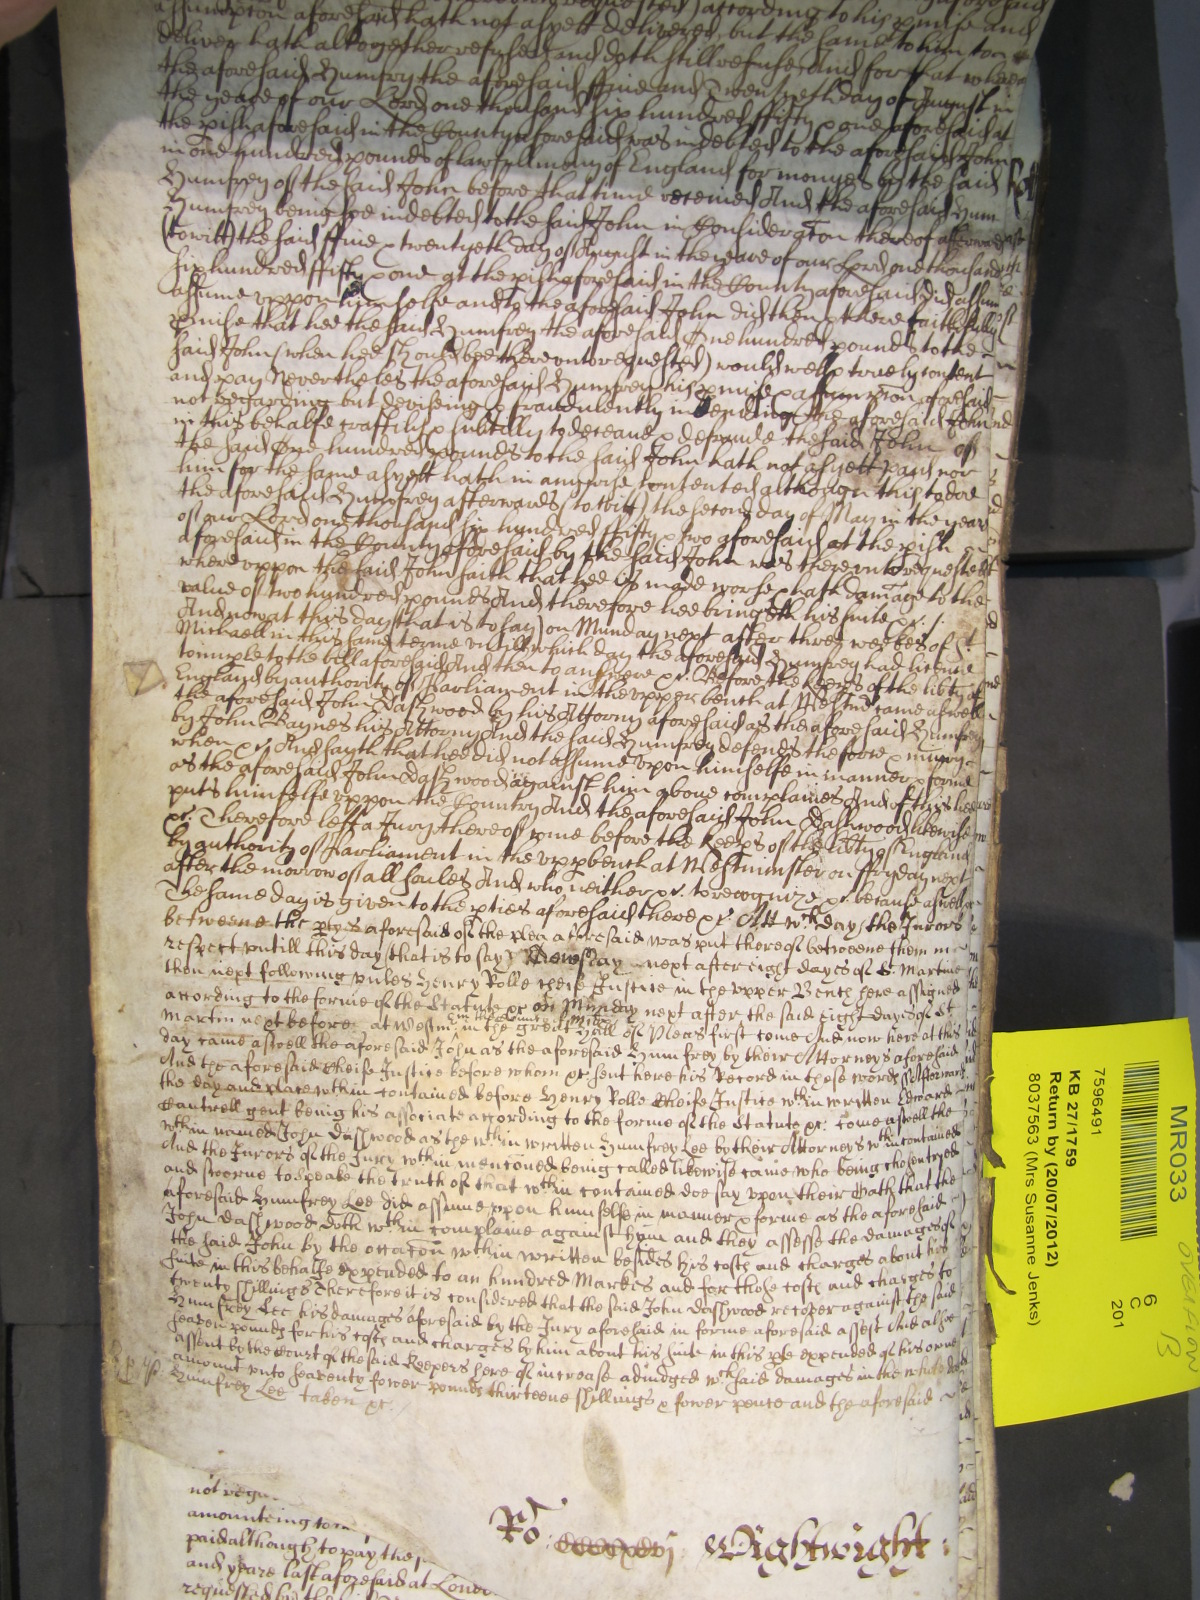 assumpcon aforesaid hath not as yett delivered, but the same to him to
deliver hath altogether refused and doth still refuse And for that where
the aforesaid Humfry the aforesaid ffive and twentyeth day of August in
the yeare of our Lord one thousand six hundred ffifty & one aforesaid at
the pish aforesaid in the County aforesaid was indebted to the aforesaid John
in one hundred pounds of lawfull mony of England for monyes by the said
Humfrey of the said John before that time received And the aforesaid Hum
Humfrey being soe indebted to the said John in Consideracon thereof afterwards
(to witt) the said ffive & twentyeth day of August in the yeare of our Lord one thousand
six hundred ffifty & one at the pish aforesaid in the County aforesaid did assume
assume uppon himselfe and to the aforesaid John did then & there faithfully
pmise that hee the said Humfrey the aforesaid One hundred pounds to the
said John (when hee should bee thereunto requested) would well & truely content
and pay Nevertheles the aforesaid Humfrey his pmise & assumpcon aforesaid
not regarding but deviseing & fraudulently intending the aforesaid John
in this behalfe craftily & subtilly to deceave & defraude the said John of
the said One hundred pounds to the said John hath not as yett paid nor
him for the same as yett hath in any wise contented although this to doe
the aforesaid Humfrey afterwards (to witt) the second day of May in the yeare
of our Lord one thousand six hundred ffifty & two aforesaid at the pish
aforesaid in the County aforesaid by the said John was thereunto requested
whereuppon the said John saith that hee is made worse & hath damage to the
value of two hundred pounds And therefore hee bringeth his suite &c.
And now at this day (that is to say) on Munday next after three weekes of St
Michaell in this same terme untill which day the aforesaid Humfrey had licence
to imple to the bill aforesaid And then to answere &c. Before the keeps of the libty of
England by authority of Parliament in the upper bench at Westmr came aswell
the aforesaid John Dashwood by his Attorny aforesaid as the aforesaid Humfrey
by John Raynes his Attorny And the said Humfrey defends the force & iniury
when &c. And sayth that hee did not assume upon himselfe in manner & forme
as the aforesaid John Dashwood against him above complaines And of this hee
puts himselfe uppon the Country And the aforesaid John Dashwood likewise
&c. Therefore lett a Jury thereof come before the keeps of the libty of England
by authority of Parliament in the upp bench at Westminster on ffryday next
after the morrow of all soules And who neither &c. to recognize &c. because aswell
The same day is given to the pties aforesaid there &c. Att wch day the Jurors
betweene the ptyes aforesaid of the plea aforesaid was put thereof betweene them in
respect untill this day that is to say Thursday next after eight dayes of St Martine
then next following unles Henry Rolle cheife Justice in the upper Bench here assigned
according to the forme of the Statute &c on Munday next after the said eight dayes of St
Martin next before at Westmr in the great Hall of Pleas first come And now here at this
day came aswell the aforesaid John as the aforesaid Humfrey by their Attorneys aforesaid
And the aforesaid cheife Justice before whom &c sent here his Record in these words Afterwards
the day and place within contained before Henry Rolle Cheife Justice wthin written Edward
Cantrell gent being his associate according to the forme of the Statute &c. come aswell the
wthin named John Dashwood as the wthin written Humfrey Lee by their Attorneys wthin contained
And the Jurors of the Jury wthin menconed being called likewise came who being chosen tryed
and sworne to speake the truth of that wthin contained doe say upon their Oath that the
aforesaid Humfrey Lee did assume upon himselfe in manner & forme as the aforesaid
John Dashwood doth wthin complaine against hym and they assesse the damages of
the said John by the occacon wthin written besides his costs and charges about his
suite in this behalfe expended to an hundred Markes and for those costs and charges to
twenty shillings Therefore it is considered that the said John Dashwood recover against the said
Humfrey Lee his damages aforesaid by the Jury aforesaid in forme aforesaid assest And alsoe
seaven pounds for his costs and charges by him about his suite in this pte expended of his owne
assent by the Court of the said Keepers here of increase adiudged wch said damages in the whole doe
amount unto seaventy fower pounds thirteene shillings & fower pence and the aforesaid
Humfrey Lee taken &c.
not rega
amounteing to
paid although to pay the
and yeare last aforesaid at London
requested by the
Ro
Wightwight
MR033
6
C
201
OVERFLOW
B
7596491
KB 27/1759
Return by (20/07/2012)
8037563 (Mrs Susanne Jenks)